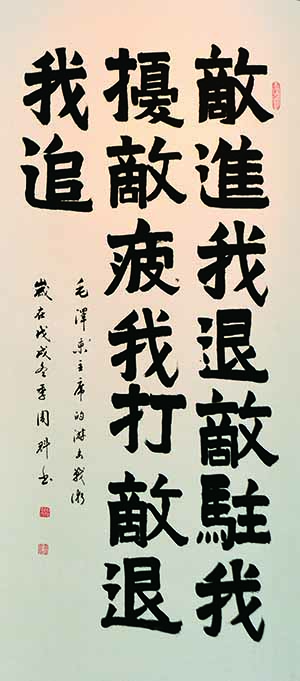 敵進我退敵駐我
擾敵疲我打敵退
我追
毛澤東主席的游击戰術
歲在戊戌冬季周科书